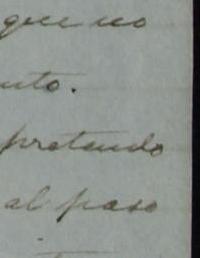 que no
nto.
pretendo
al paso